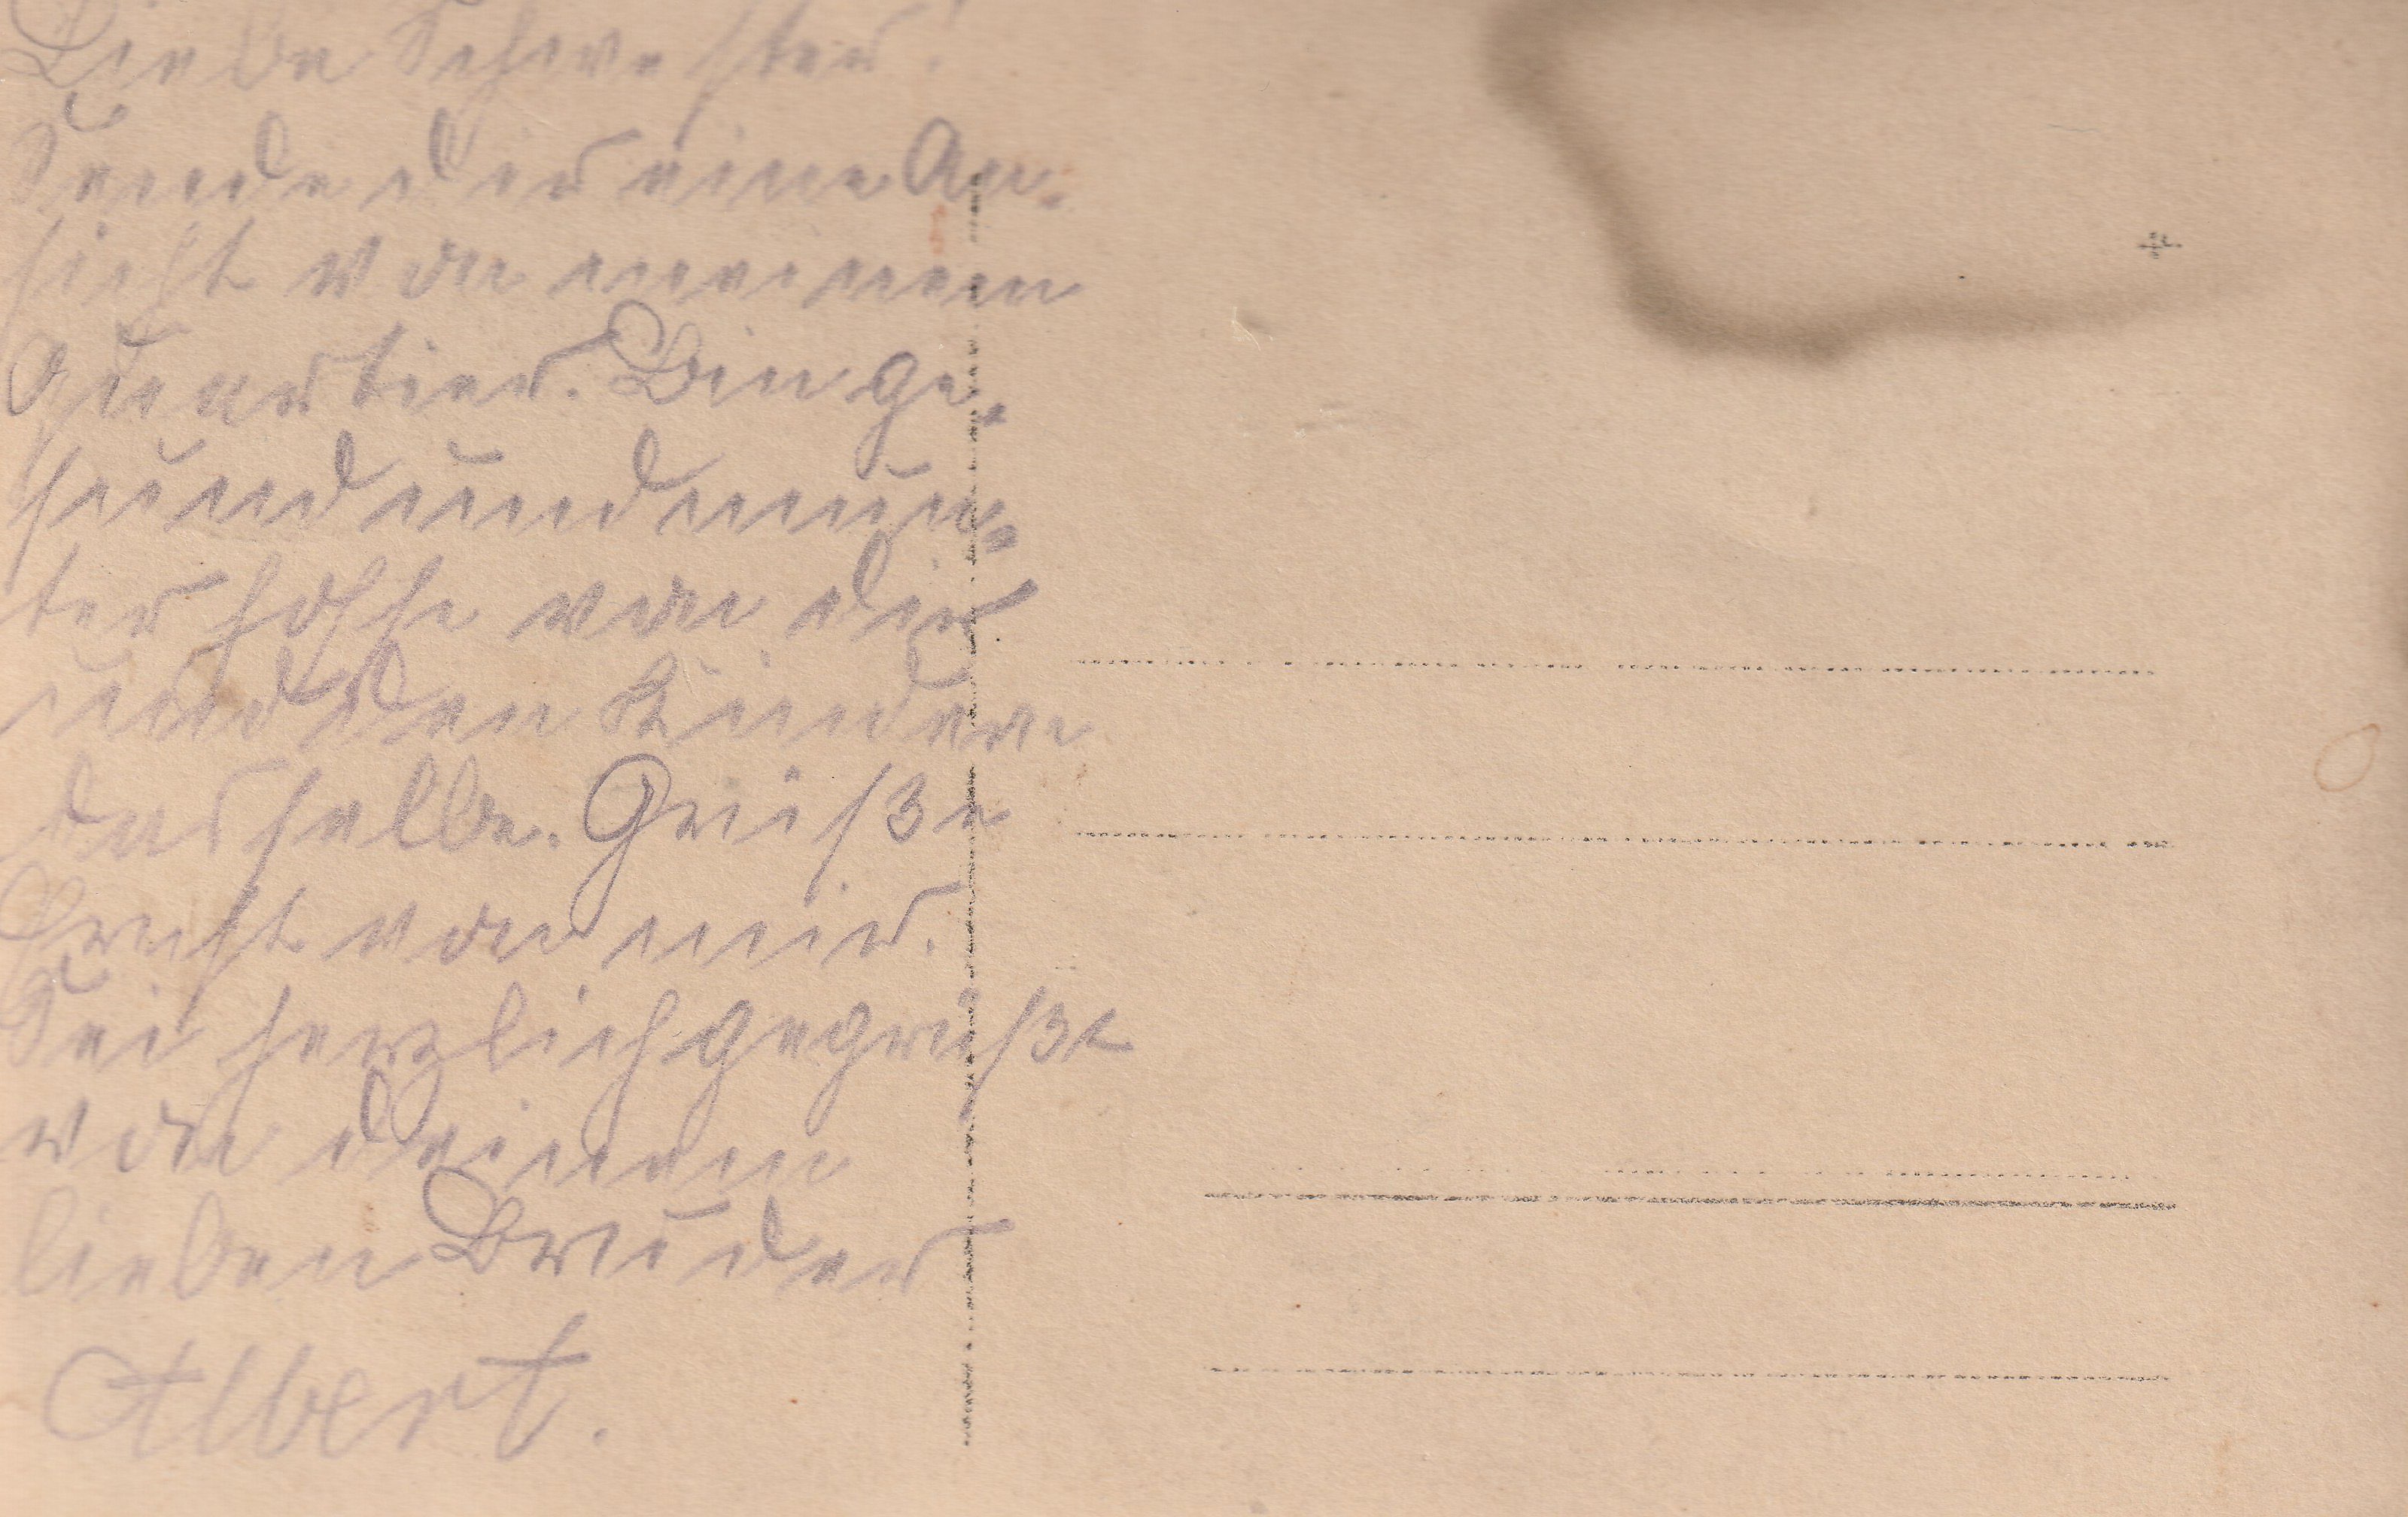 Liebe Schwester!
Sende dir eine An-
sicht von meinem
Quartier. Bin ge-
sund und mun-
ter hoffe von dir
und den Kindern
dasselbe. Grüße
Ernst von mir.
Sei herzlich gegrüßt
von deinem
lieben Bruder
Albert.